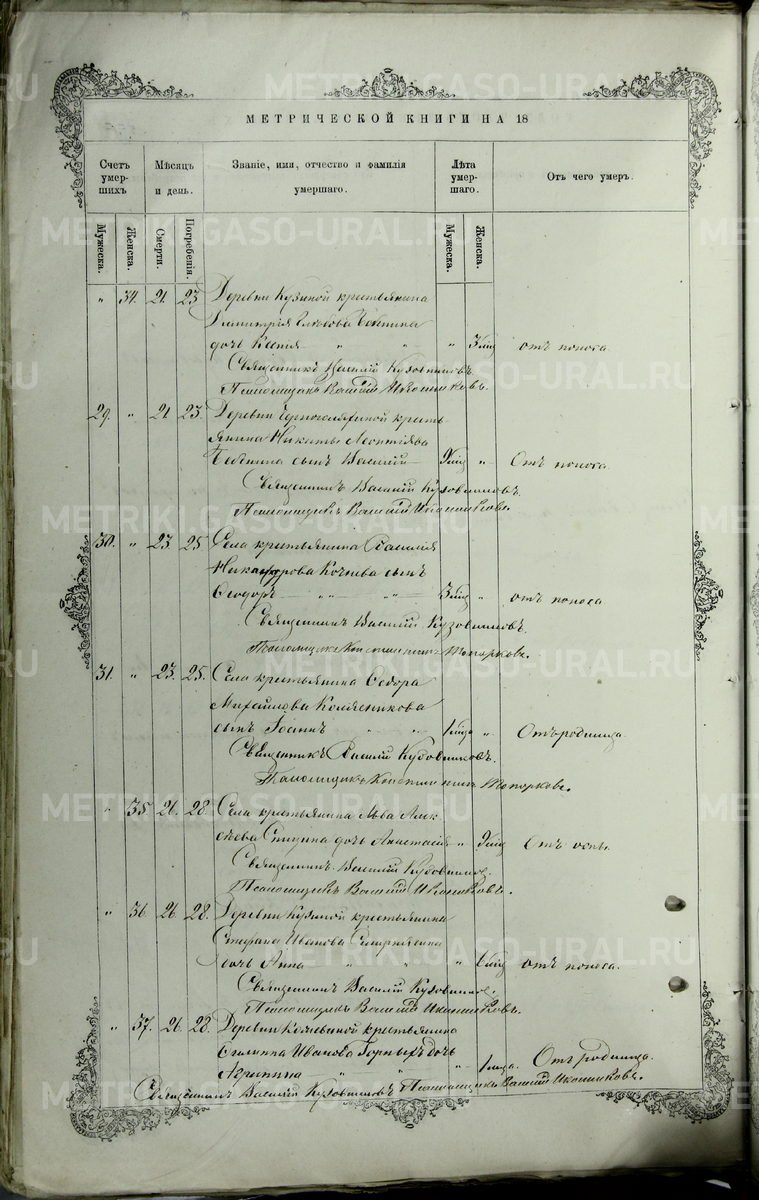 МЕТРИЧЕСКОЙ КНИГИ НА 18
Счетъ умершихъ
Мѣсяцъ и день.
Званіе, имя, отчество и фамилія умершаго.
Лѣта умершаго.
Отъ чего умеръ.
Мужеска.
Женска.
Смерти.
Погребенія.
Мужеска.
Женска.
" 34. 21. 23 Деревни Кузиной крестьянина
Димитрія Глѣбова
дочь Ксенія " " " отъ поноса.
Священникъ Василій Кузовниковъ.
Псаломщикъ Василій Иконниковъ.
29. " 21 23. Деревни крестьянина Никиты Леонтіева
сынъ Василій " Отъ поноса.
Священникъ Василій Кузовниковъ.
Псаломщикъ Василій Иконниковъ.
30. " 23 25 Села крестьянина Василія
Никандрова сынъ
Ѳеодоръ " " " отъ поноса
Священникъ Василій Кузовниковъ.
Псаломщикъ Константинъ Топорковъ.
31. " 23. 25. Села крестьянина Ѳедора
Михайлова
сынъ Іоаннъ " " " Отъ родимца.
Священникъ Василій Кузовниковъ.
Псаломщикъ Константинъ Топорковъ.
" 35 26. 28. Села крестьянина Льва Алексѣева
дочь Анастасія " Отъ оспы.
Священникъ Василій Кузовниковъ.
Псаломщикъ Василій Иконниковъ.
" 36. 26 28. Деревни Кузиной крестьянина
Стефана Иванова
дочь Анна " " " отъ поноса.
Священникъ Василій Кузовниковъ.
Псаломщикъ Василій Иконниковъ.
" 37. 26. 28. Деревни крестьянина
Иванова Горныхъ дочь
Агрипина " " " Отъ родимца.
Священникъ Василій Кузовниковъ Псаломщикъ Василій Иконниковъ.
METRIKI.GASO-URAL.RU